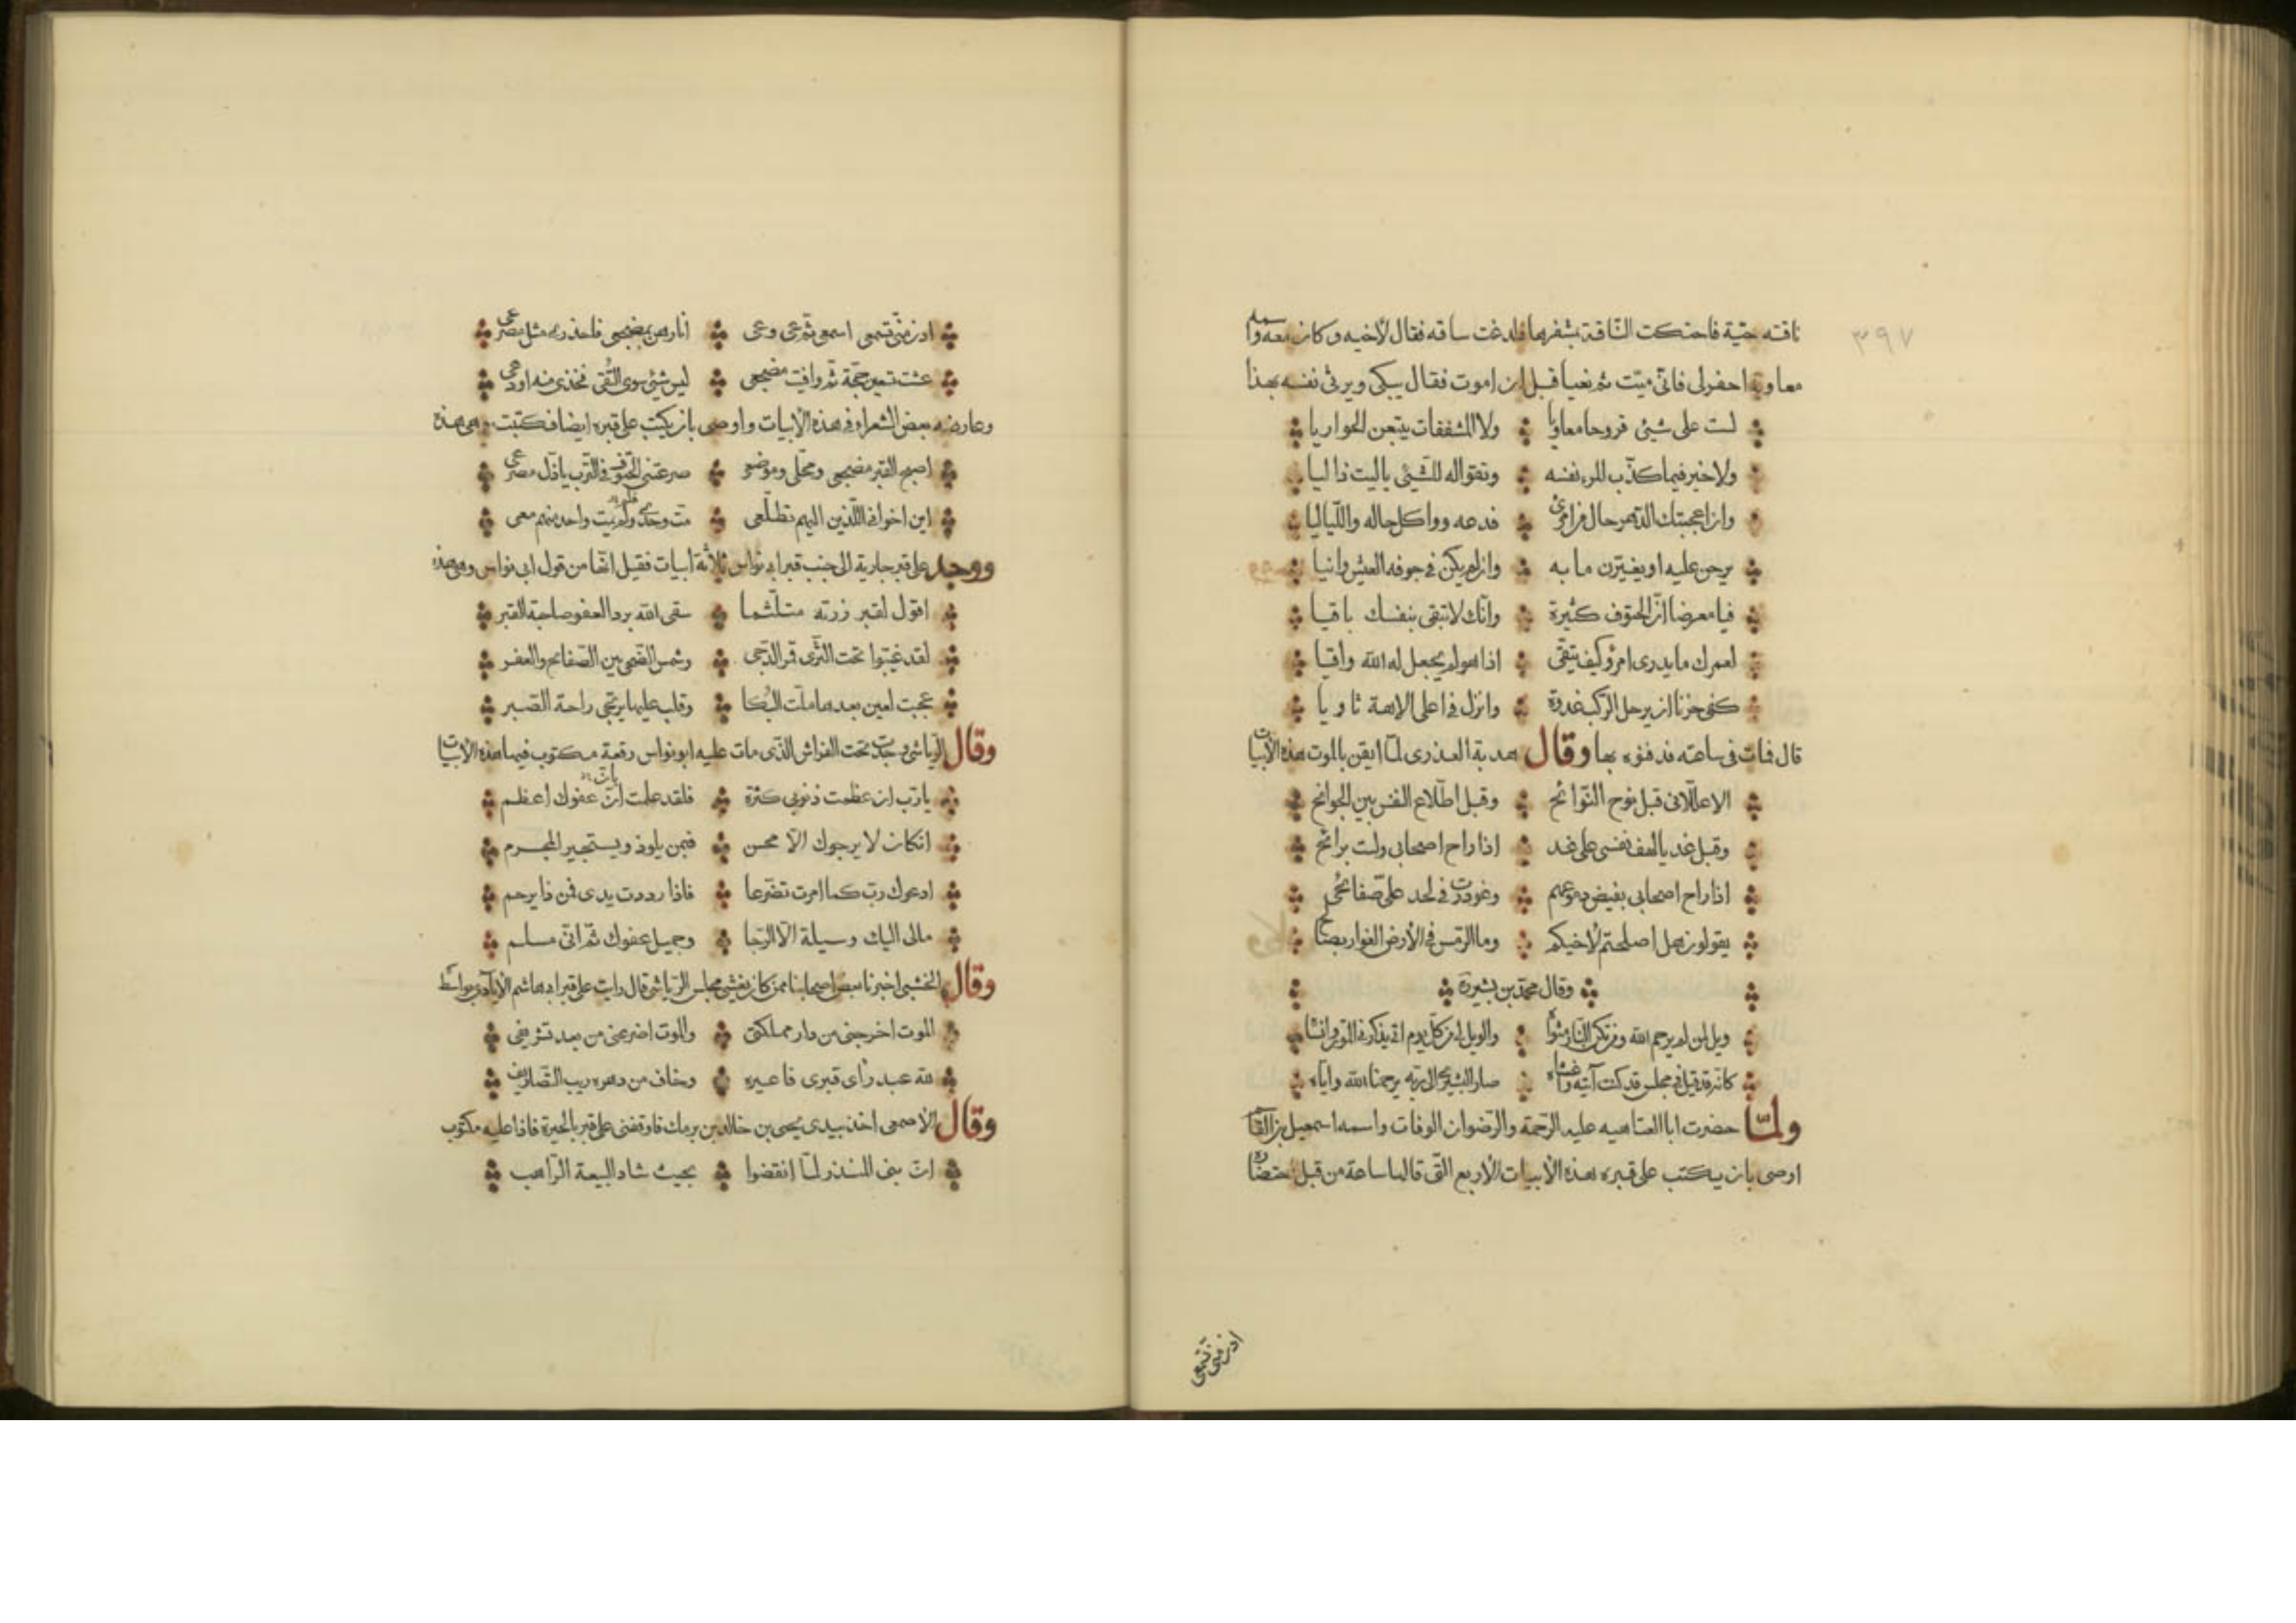 ٣٩٧
ناقته حيّة فاحتكت النّاقة بمشفرها فلدغت ساقه فقال لأخيه وكان معه واسمه
معاوية احفر لى فانّى ميّت ثم نعيا قبل ان اموت فقال يبكى ويرثى نفسه بهذا
لست على شيئى فروحا معاويا ولا المشفقات يتبعن الحواريا
ولا خير فيما كذّب المرء نفسه وتقواله للشّيئى ياليت ذا ليا
وان اعجبتك الدّهر حال من امرئ فدعه وواكل حاله واللّياليا
يرحن عليه او يغيّرن ما به وان لم يكن فى جوفه العيش وانيا
فيا معرضا انّ الحتوف كثيرة وانّك لا تبقى بنفسك باقيا
لعمرك ما يدرى امرؤ كيف يتقى اذا هو لم يجعل له الله واقيا
كفى حزنا ان يرحل الركب غدوة وانزل فى اعلى الاهة ثاويا
قال فمات فى ساعته فدفنوه بها وقال هدبة العذرى لمّا ايقن بالموت هذه الأبيات
الا علّلانى قبل نوح النّوائح وقبل اطّلاع النفس بين الجوانح
وقبل غد يا لهف نفسى على غد اذا راح اصحابى ولست برائح
اذا راح اصحابى بفيض دموعهم وغودرت فى لحد علىّ صفائحى
يقولون هل اصلحتم لأخيكم وما الرّمس فى الأرض الغوار بصالح
وقال محمّد بن بشيرة
ويل لمن لم يرحم الله ومن تكن النّار مثواه والويل لى من كلّ يوم اتى يذكرنى الموت وانساه
كانّه قد قيل فى مجلس قد كنت آتيه واغشاه صار البشيرىّ الى ربّه يرحمنا الله وايّاه
ولمّا حضرت ابا العتاهيه عليه الرّحمة والرّضوان الوفات واسمه اسمعيل بن القاسم
اوصى بان يكتب على قبره هذه الأبيات الأربع الّتى قالها ساعة من قبل احتضاره
اذن منّى تسمعى
اذن منّى تسمّعى اسمعى ثم عى وعى انا رهن بمضجعى فاحذرى مثل مصرعى
عشت تسعين حجّة ثم وافيت مضجعى ليس شيئى سوى التّقى فخذى منه او دعى
وعارضه بعض الشعراء فى هذه الأبيات واوصى بان يكتب على قبره ايضا فكتبت وهى هذه
اصبح القبر مضجعى ومحلّى وموضعى صرعتنى الحتوف فى الترب ياذلّ مصرعى
اين اخوانى الّذين اليهم تطلّعى متّ وحدى ولم يمت واحد منهم معى
ووجد على قبر جارية الى جنب قبر ابى نواس ثلاثة ابيات فقيل انها من قول ابى نواس وهى هذه
اقول لقبر زرته متلثّما سقى الله برد العفو صاحبة القبر
لقد غيّبوا تحت الثّرى قمر الدّجى وشمس الضّحى بين الصّفائح والعفر
عجبت لعين بعدها ملّت البُكا وقلب عليها يرتجى راحة الصّبر
وقال الرّياشى وجدت تحت الفراش الّذى مات عليه ابو نواس رقعة مكتوب فيها هذه الأبيات
يا ربّ ان عظمت ذنوبى كثرة فلقد علمت بانّ عفوك اعظم
ان كان لا يرجوك الّا محسن فبمن يلوذ ويستجير المجرم
ادعوك ربّ كما امرت تضرّعا فاذا رددت يدى فمن ذا يرحم
مالى اليك وسيلة الّا الرّجا وجميل عفوك ثمّ انّى مسلم
وقال الخشنى اخبرنا بعض اصحابنا ممن كان يغشى مجلس الرّياشى قال رايت على قبر ابى هاشم الأيادى بواسط
الموت اخرجنى من دار مملكتى والموت اضرعنى من بعد تشريفى
لله عبد رأى قبرى فاعبره وخاف من دهره ريب التّصاريف
وقال الأصمعى اخذ بيدى يحيى بن خالد بن برمك فاوقفنى على قبر بالحيرة فاذا عليه مكتوب
انّ بنى المنذر لمّا انقضوا بحيث شاد البيعة الرّاهب